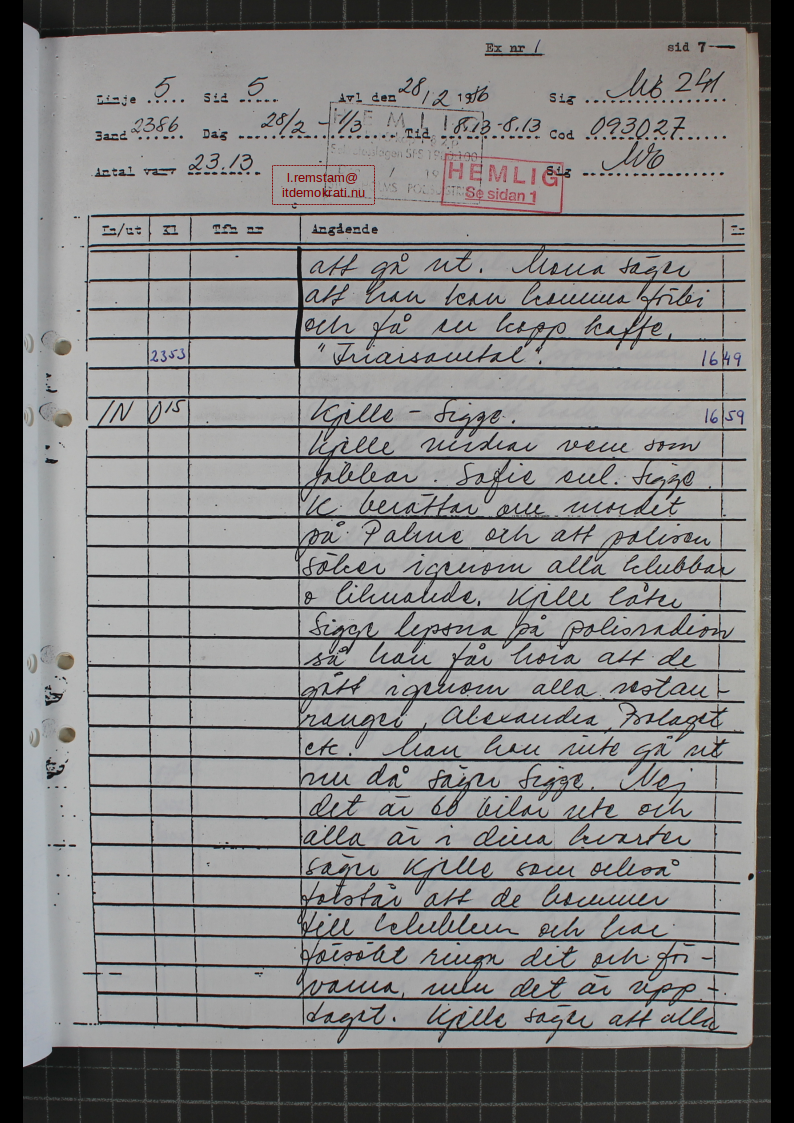 Ex nr 1 sid 7
Linje 5 Sid 5 Avl den 28/2 1986 Sig MB 241
Band 2386 Dag 28/2 - 1/3 Tid 18.13-8.13 Cod 093027
Antal 23.13 Sig
HEMLIG
l.remstam@
itdemokrati.nu
HEMLIG
Se sidan 1
In/ut Kl Tfn nr Angående
att gå ut. Mona säger
att han kan komma förbi
och få en kopp kaffe.
2353 "Internsamtal". 1649
IN 015 Kjelle - Sigge. 1659
Kjelle undrar vem som
jobbar. Sofie enl. Sigge.
K berättar om mordet
på Palme och att polisen
söker igenom alla klubbar
o liknande. Kjelle låter
Sigge lyssna på polisradion
så han får höra att de
gått igenom alla restau-
ranger, Alexandra, Bolaget
etc. Man kan inte gå ut
nu då säger Sigge. Nej
det är 60 bilar ute och
alla är i dina kvarter
säger Kjelle som också
förstår att de kommer
till klubben och har
försökt ringa dit och för-
varna, men det är upp-
taget. Kjelle säger att alla